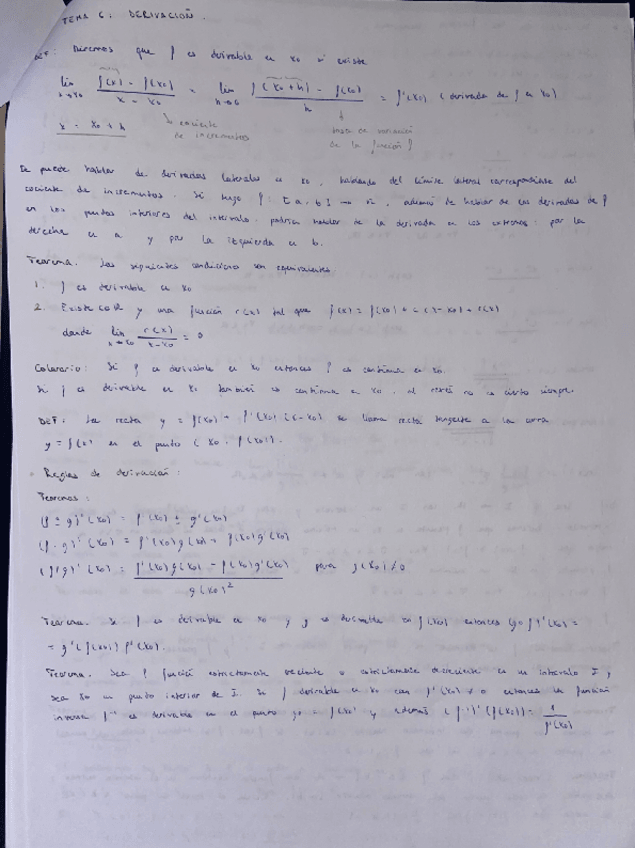 TEMA 6: DERIVACIÓN.
DEF: Diremos que f es derivable en x0 si existe
lim x→x0 (f(x) - f(x0)) / (x - x0) = lim h→0 (f(x0+h) - f(x0)) / h = f'(x0) (derivada de f en x0)
x = x0 + h
↳ cociente de incrementos
tasa de variación de la función f
Se puede hablar de derivadas laterales en x0, hablando del límite lateral correspondiente del
cociente de incrementos. Si tengo f: [a, b] → R, además de hablar de las derivadas de f
en los puntos interiores del intervalo. podría hablar de la derivada en los extremos: por la
derecha en a y por la izquierda en b.
Teorema. Las siguientes condiciones son equivalentes.
1. f es derivable en x0
2. Existe c∈R y una función r(x) tal que f(x) = f(x0) + c(x-x0) + r(x)
donde lim x→x0 r(x) / (x-x0) = 0
Colorario: Si f es derivable en x0 entonces f es continua en x0.
Si f es derivable en x0 también es continua en x0, al revés no es cierto siempre.
DEF: La recta y = f(x0) + f'(x0)(x-x0) se llama recta tangente a la curva
y = f(x) en el punto (x0, f(x0)).
• Reglas de derivación:
Teoremas:
(f ± g)'(x0) = f'(x0) ± g'(x0)
(f · g)'(x0) = f'(x0)g(x0) + f(x0)g'(x0)
(f/g)'(x0) = (f'(x0)g(x0) - f(x0)g'(x0)) / g(x0)² para g(x0) ≠ 0
Teorema. Si f es derivable en x0 y g es derivable en f(x0) entonces (g∘f)'(x0) =
= g'(f(x0)) f'(x0).
Teorema. Sea f función estrictamente creciente o estrictamente decreciente en un intervalo I,
sea x0 un punto interior de I. Si f derivable en x0 con f'(x0) ≠ 0 entonces la función
inversa f⁻¹ es derivable en el punto y0 = f(x0) y además (f⁻¹)'(f(x0)) = 1 / f'(x0)